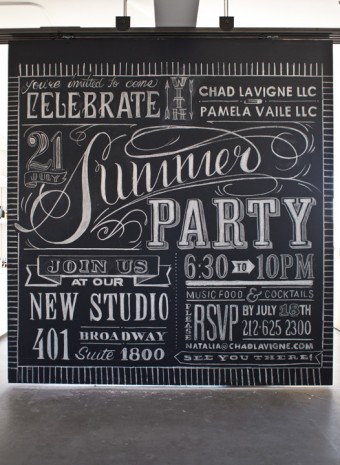 you're invited to come
CELEBRATE
WITH
CHAD LAVIGNE LLC
PAMELA VAILE LLC
21
JULY
Summer
PARTY
JOIN US
AT OUR
NEW STUDIO
401 BROADWAY
Suite 1800
6:30 TO 10PM
MUSIC FOOD & COCKTAILS
PLEASE
RSVP
BY JULY 15TH
212·625 2300
NATALIA@CHADLAVIGNE.COM
SEE YOU THERE!